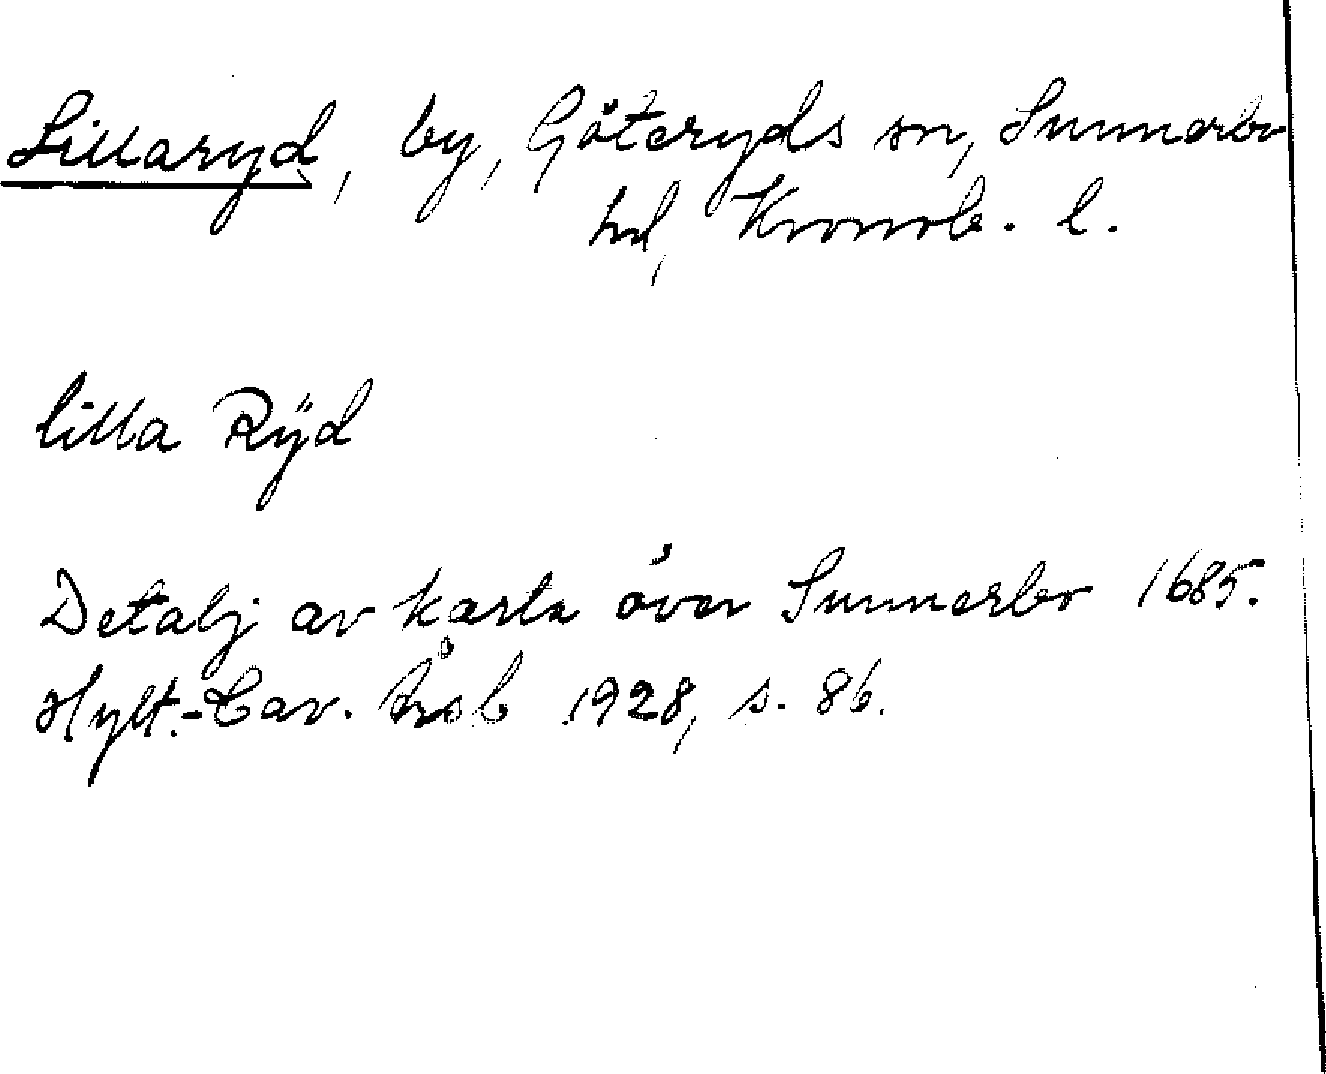 Lillaryd, by, Göteryds sn, Sunnerbo
hd, Kronob. l.
lilla Rÿd
Detalj av karta över Sunnerbo 1685.
Hylt.-Cav. årsb 1928, s. 86.